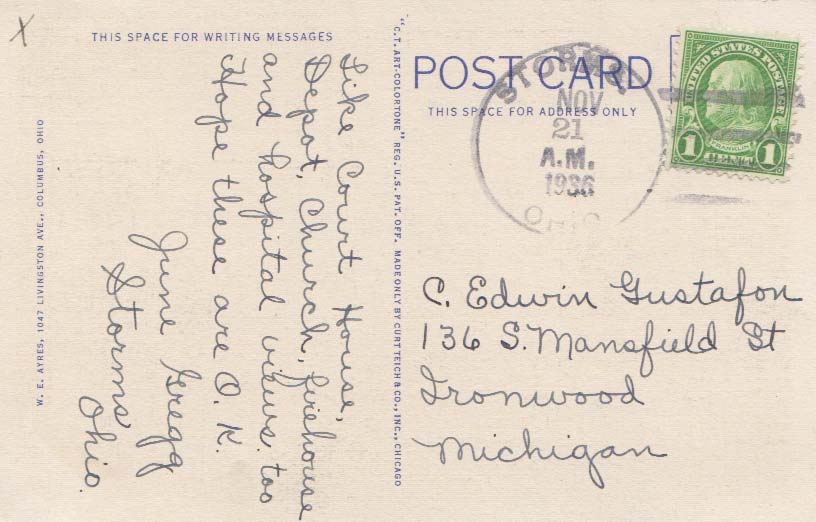 X
THIS SPACE FOR WRITING MESSAGES
Like Court House,
Depot, Church, firehouse
and hospital views too
Hope these are O.K.
June Gregg
Storms
Ohio.
W. E. AYRES, 1047 LIVINGSTON AVE., COLUMBUS, OHIO
"C.T. ART-COLORTONE" REG. U.S. PAT. OFF. MADE ONLY BY CURT TEICH & CO., INC., CHICAGO
POST CARD
THIS SPACE FOR ADDRESS ONLY
STORMS
NOV
21
A.M.
1936
OHIO
UNITED STATES POSTAGE
FRANKLIN
1 CENT 1
C. Edwin Gustafon
136 S. Mansfield St
Ironwood
Michigan